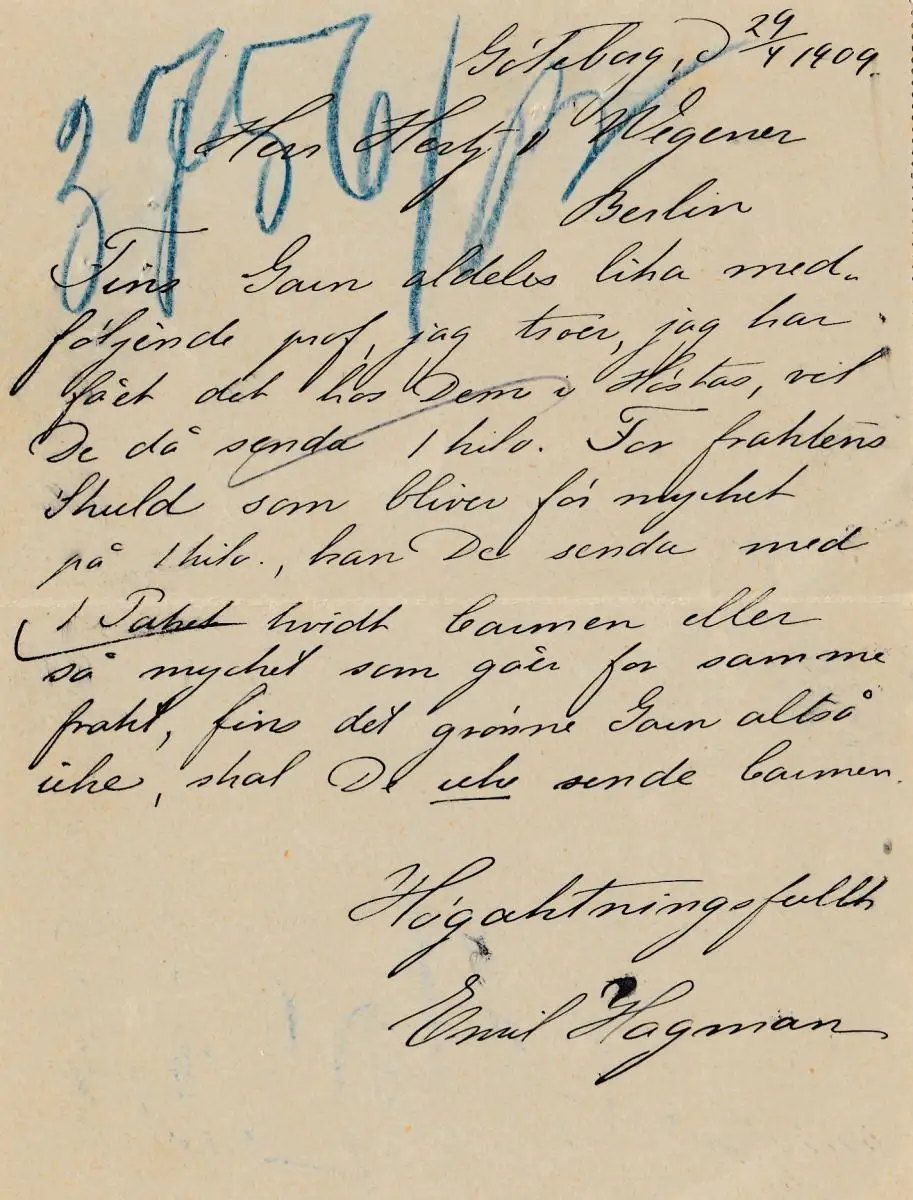 Göteborg, d 29/4 1909.
3756/
Herr Hertz & Wegener
Berlin
Fins Garn aldeles lika med„
följende prof, jag troer, jag har
fået det hos Dem i Höstas, vil
De då senda 1 kilo. For fraktens
Skuld som bliver för mycket
på 1 kilo., kan De senda med
1 Paket hvidt Garnen eller
så mycket som gåer for samme
frakt, fins det grønne Garn altså
ikke, skal De ikke sende Garnen.
Högaktningsfullt
Emil Hagman